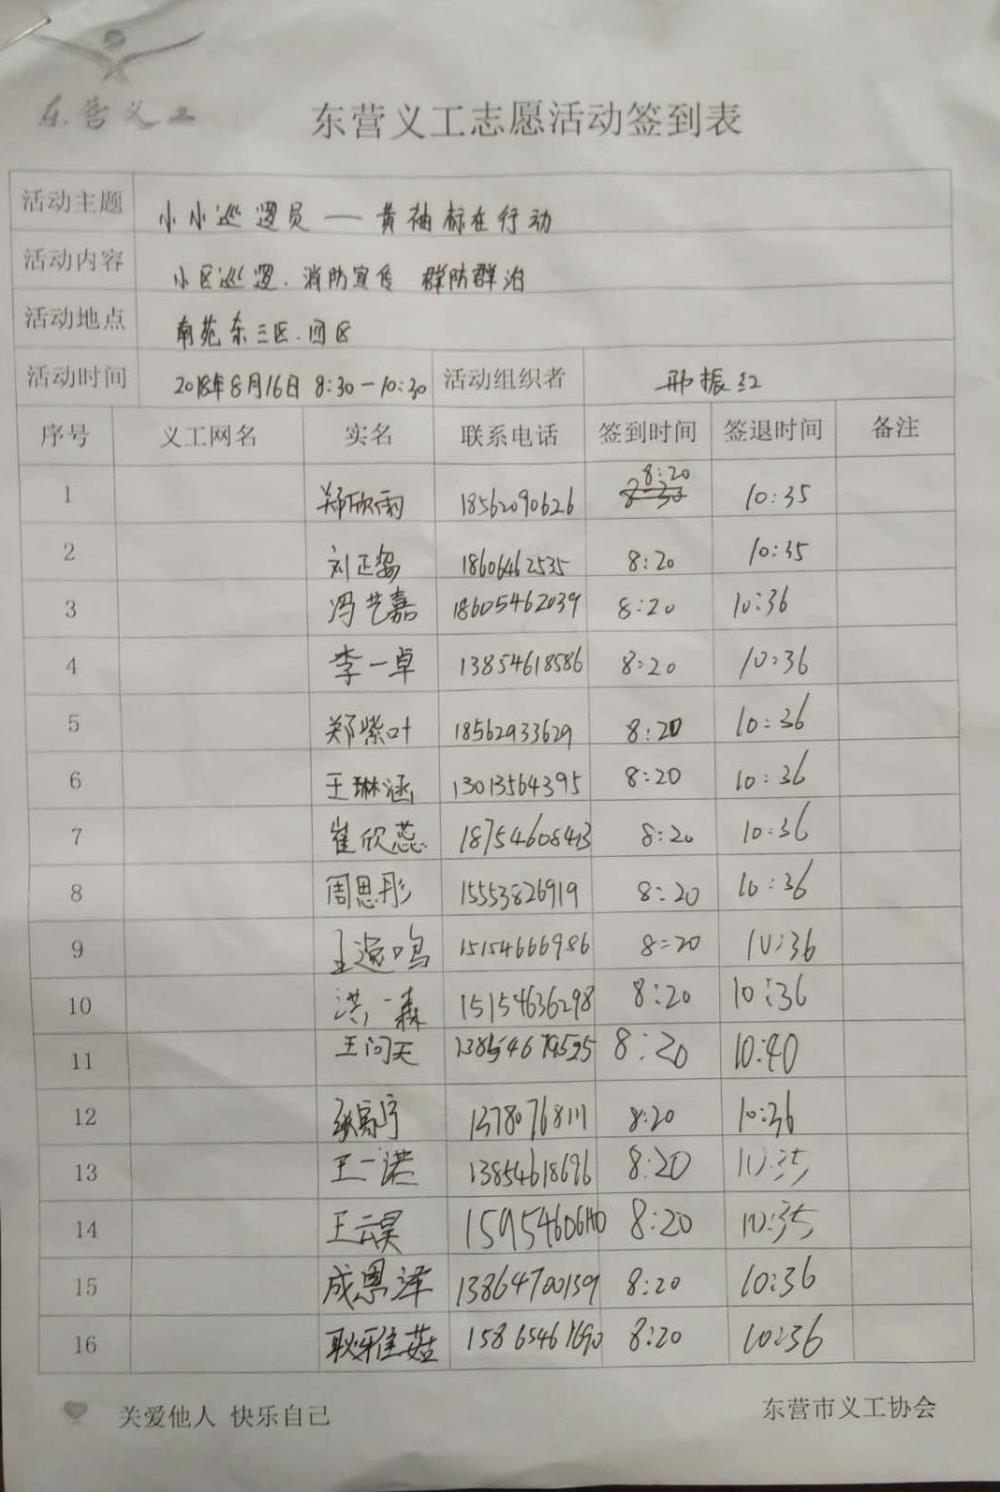 东营义工
东营义工志愿活动签到表
活动主题 小小巡逻员——黄袖标在行动
活动内容 小区巡逻.消防宣传 群防群治
活动地点 南苑东三区.四区
活动时间 2018年8月16日 8:30-10:30 活动组织者 邢振红
序号 义工网名 实名 联系电话 签到时间 签退时间 备注
1 郑欣雨 18562090626 8:20 10:35
2 刘正 18606462535 8:20 10:35
3 冯艺嘉 18605462039 8:20 10:36
4 李一卓 13854618586 8:20 10:36
5 郑紫叶 18562933629 8:20 10:36
6 王琳涵 13013564395 8:20 10:36
7 崔欣蕊 18754608413 8:20 10:36
8 周思彤 15553826919 8:20 10:36
9 王 鸣 15154666986 8:20 10:36
10 洪一森 15154636298 8:20 10:36
11 王问天 8:20 10:40
12 张 宁 13780768111 8:20 10:36
13 王一诺 13854618696 8:20 10:35
14 王云昊 8:20 10:35
15 成恩泽 13864700139 8:20 10:36
16 耿雅茹 15865461690 8:20 10:36
关爱他人 快乐自己 东营市义工协会